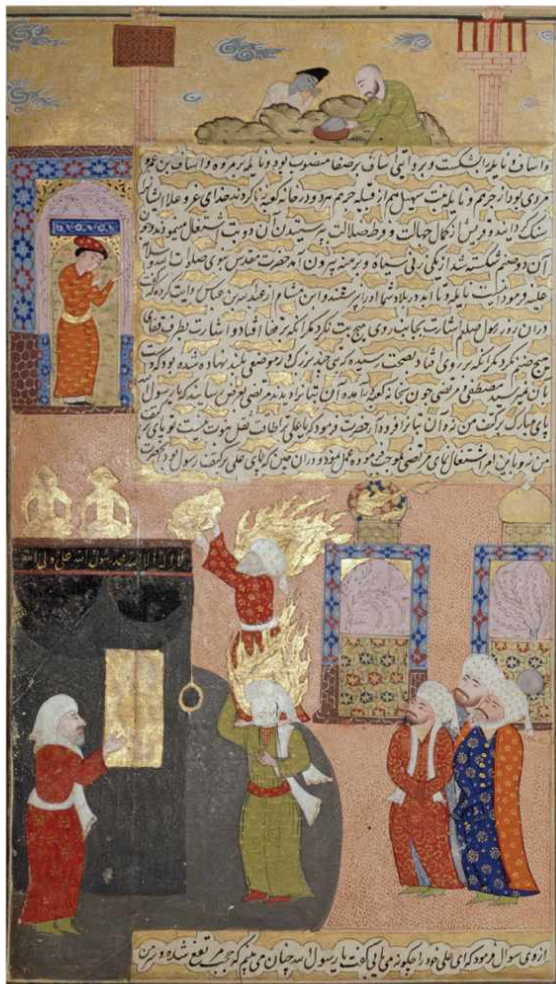 و اساف و نایله را بشکست و بروایتی اساف بر صفا منصوب بود و نایله بر مروه و اساف بن عمرو
مردی بود از جرهم و نایله بنت سهیل هم از قبیله جرهم هر دو در خانه کعبه زنا کردند خدای عز و علا ایشانرا
سنگ گردانید و قریش از کمال جهالت و فرط ضلالت پرستیدن آن دو بت اشتغال مینمودند و چون
آن دو صنم شکسته شد از یکی زنی سیاه و برهنه بیرون آمد حضرت مقدس نبوی صلوات
علیه فرمود اینست نایله و نایله در بلاد شما او را پرستند و ابن هشام از عبدالله بن عباس روایت کرده که
در آن روز رسول صلعم اشارت بجانب روی هیچ بت نکرد مگر آنکه بر قفا افتاد و اشارت بطرف قفای
هیچ صنم نکرد مگر آنکه بر روی افتاد بصحت رسیده که بتی چند بزرگ را در موضعی بلند نهاده شده بود که دست
بآن نمیرسید مصطفی و مرتضی چون بخانه کعبه در آمده آن بتانرا دیدند مرتضی بعرض رسانید که یا رسول الله
پای مبارک بر کتف من نه و آن بتانرا فرود آر حضرت فرمود که یا علی ترا طاقت ثقل نبوت نیست تو پای بر کتف
من نه و باین امر اشتغال نمای مرتضی بموجب فرموده عمل نمود و در آن حین که پای علی بر کتف رسول بود حضرت
لا اله الا الله محمد رسول الله علی ولی الله
از وی سوال فرمود که ای علی خود را چگونه می یابی گفت یا رسول الله چنان می بینم که حجب مرتفع شده و سر من